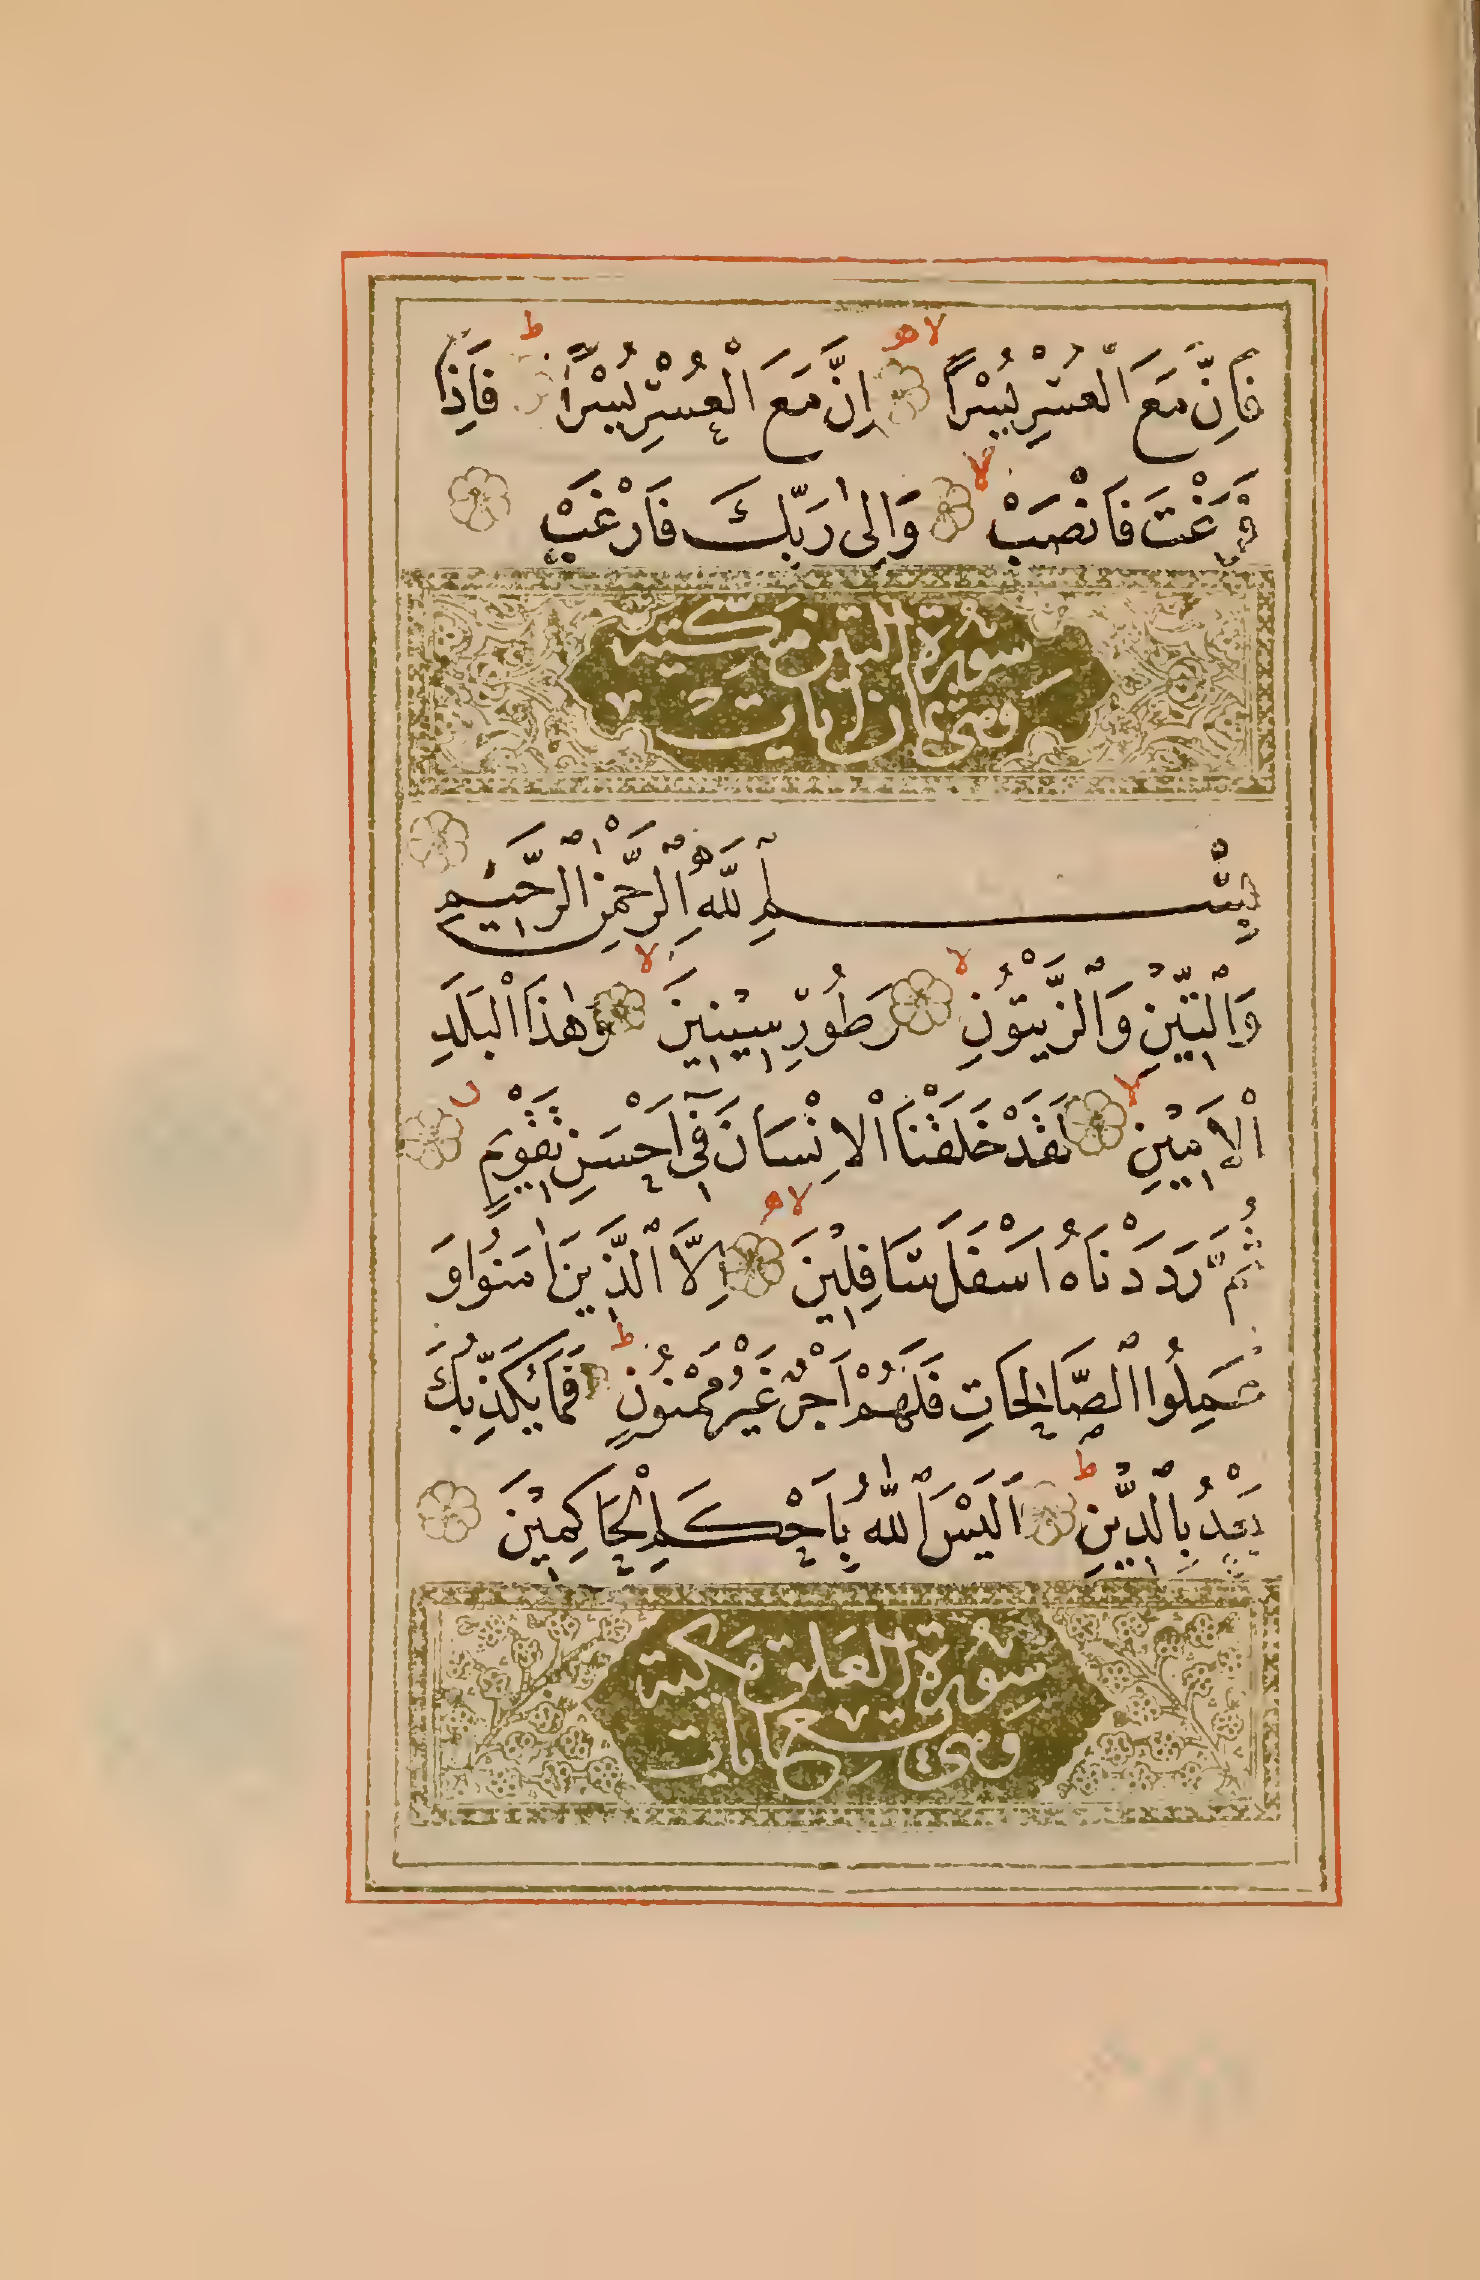 فَاِنَّ مَعَ الْعُسْرِ يُسْرًا لا ه اِنَّ مَعَ الْعُسْرِ يُسْرًا ط فَاِذَا
فَرَغْتَ فَانْصَبْ لا وَاِلٰى رَبِّكَ فَارْغَبْ
سورة التين مكية
وهي ثمان ايات
بِسْمِ اللّٰهِ الرَّحْمٰنِ الرَّحِيْمِ
وَالتِّيْنِ وَالزَّيْتُوْنِ لا وَطُوْرِ سِيْنِيْنَ لا وَهٰذَا الْبَلَدِ
الْاَمِيْنِ لا لَقَدْ خَلَقْنَا الْاِنْسَانَ فِيٓ اَحْسَنِ تَقْوِيْمٍ
ثُمَّ رَدَدْنَاهُ اَسْفَلَ سَافِلِيْنَ لا ه اِلَّا الَّذِيْنَ اٰمَنُوْا وَ
عَمِلُوا الصَّالِحَاتِ فَلَهُمْ اَجْرٌ غَيْرُ مَمْنُوْنٍ ط فَمَا يُكَذِّبُكَ
بَعْدُ بِالدِّيْنِ ط اَلَيْسَ اللّٰهُ بِاَحْكَمِ الْحَاكِمِيْنَ
سورة العلق مكية
وهي ايات